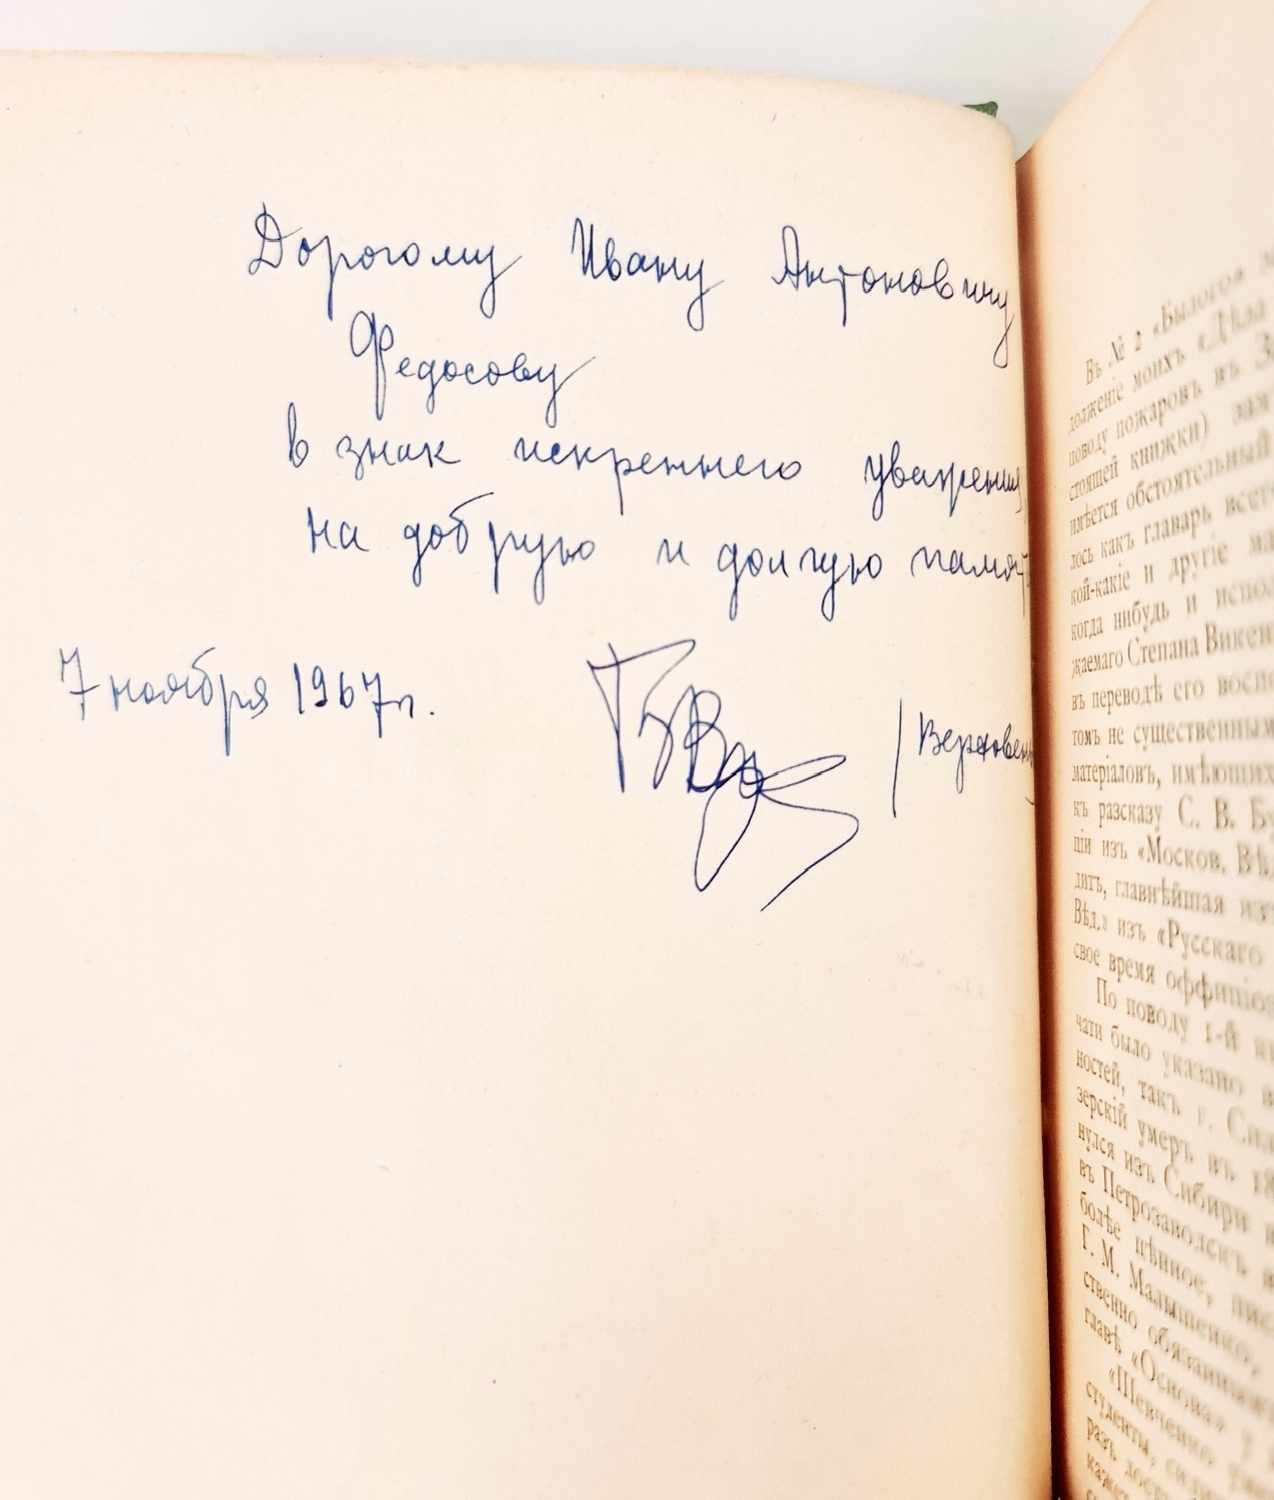 Дорогому Ивану Антоновичу
Федосову
в знак искреннего уважения,
на добрую и долгую памят
7 ноября 1967 г.
/Верховен
Въ № 2 «Былого»
долженіе моихъ «Дѣла
поводу пожаровъ въ
стоящей книжки)
имѣется обстоятельный
лось какъ главарь всего
кой-какіе и другіе
когда нибудь и испол
жаемаго Степана Викен
въ переводѣ его воспо
томъ не существенным
матеріаловъ, имѣющих
къ разсказу С. В. Бу
ціи изъ «Москов. Вѣд
дитъ, главнѣйшая изъ
Вѣд.» изъ «Русскаго
свое время оффиціоз
По поводу 1-й
чати было указано
ностей, такъ г.
зерскій умеръ въ 18
нулся изъ Сибири
въ Петрозаводскъ
болѣе цѣнное,
Г. М. Малышенко,
ственно обязанным
главѣ «Основа»
«Шевченко
студенты,
разъ